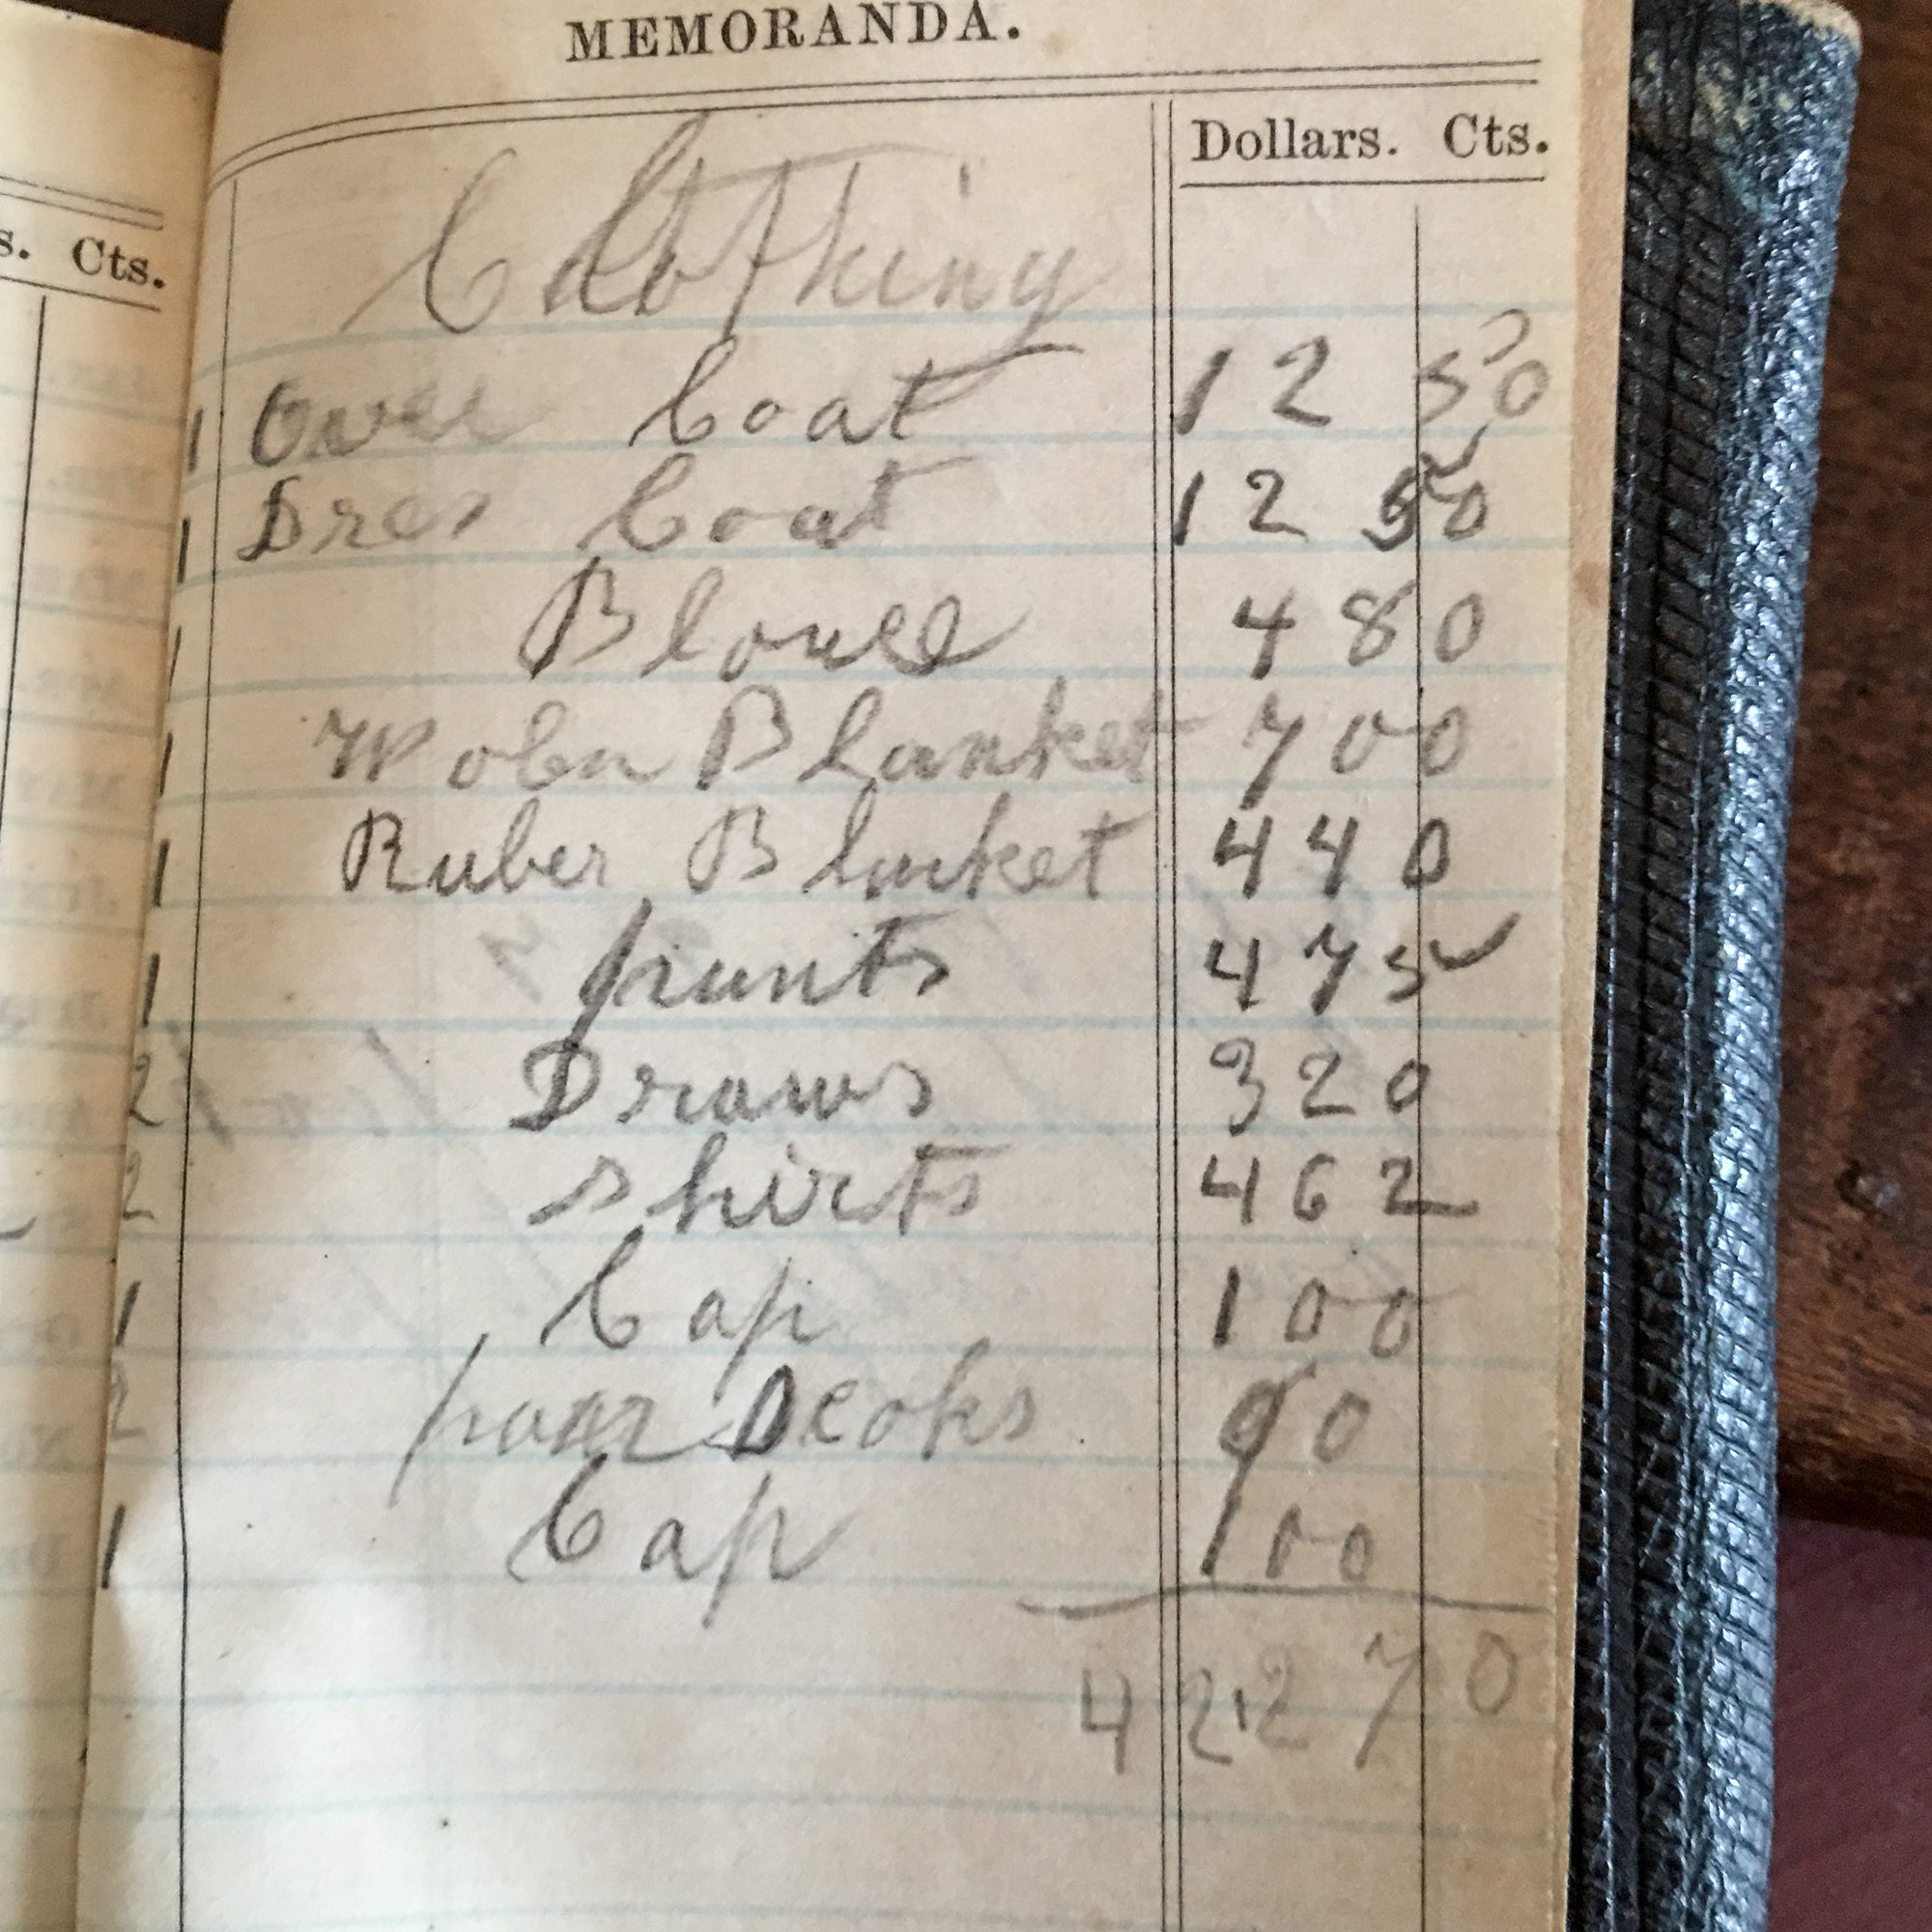 MEMORANDA.
s. Cts.
Dollars. Cts.
Clothing
1 Over Coat 12 50
1 Dres Coat 12 50
1 Blouse 4 80
1 Wolen Blanket 7 00
1 Ruber Blanket 4 40
1 pants 4 75
2 Draws 3 20
2 shirts 4 62
1 Cap 1 00
2 90
1 Cap 1 00
42 2 70